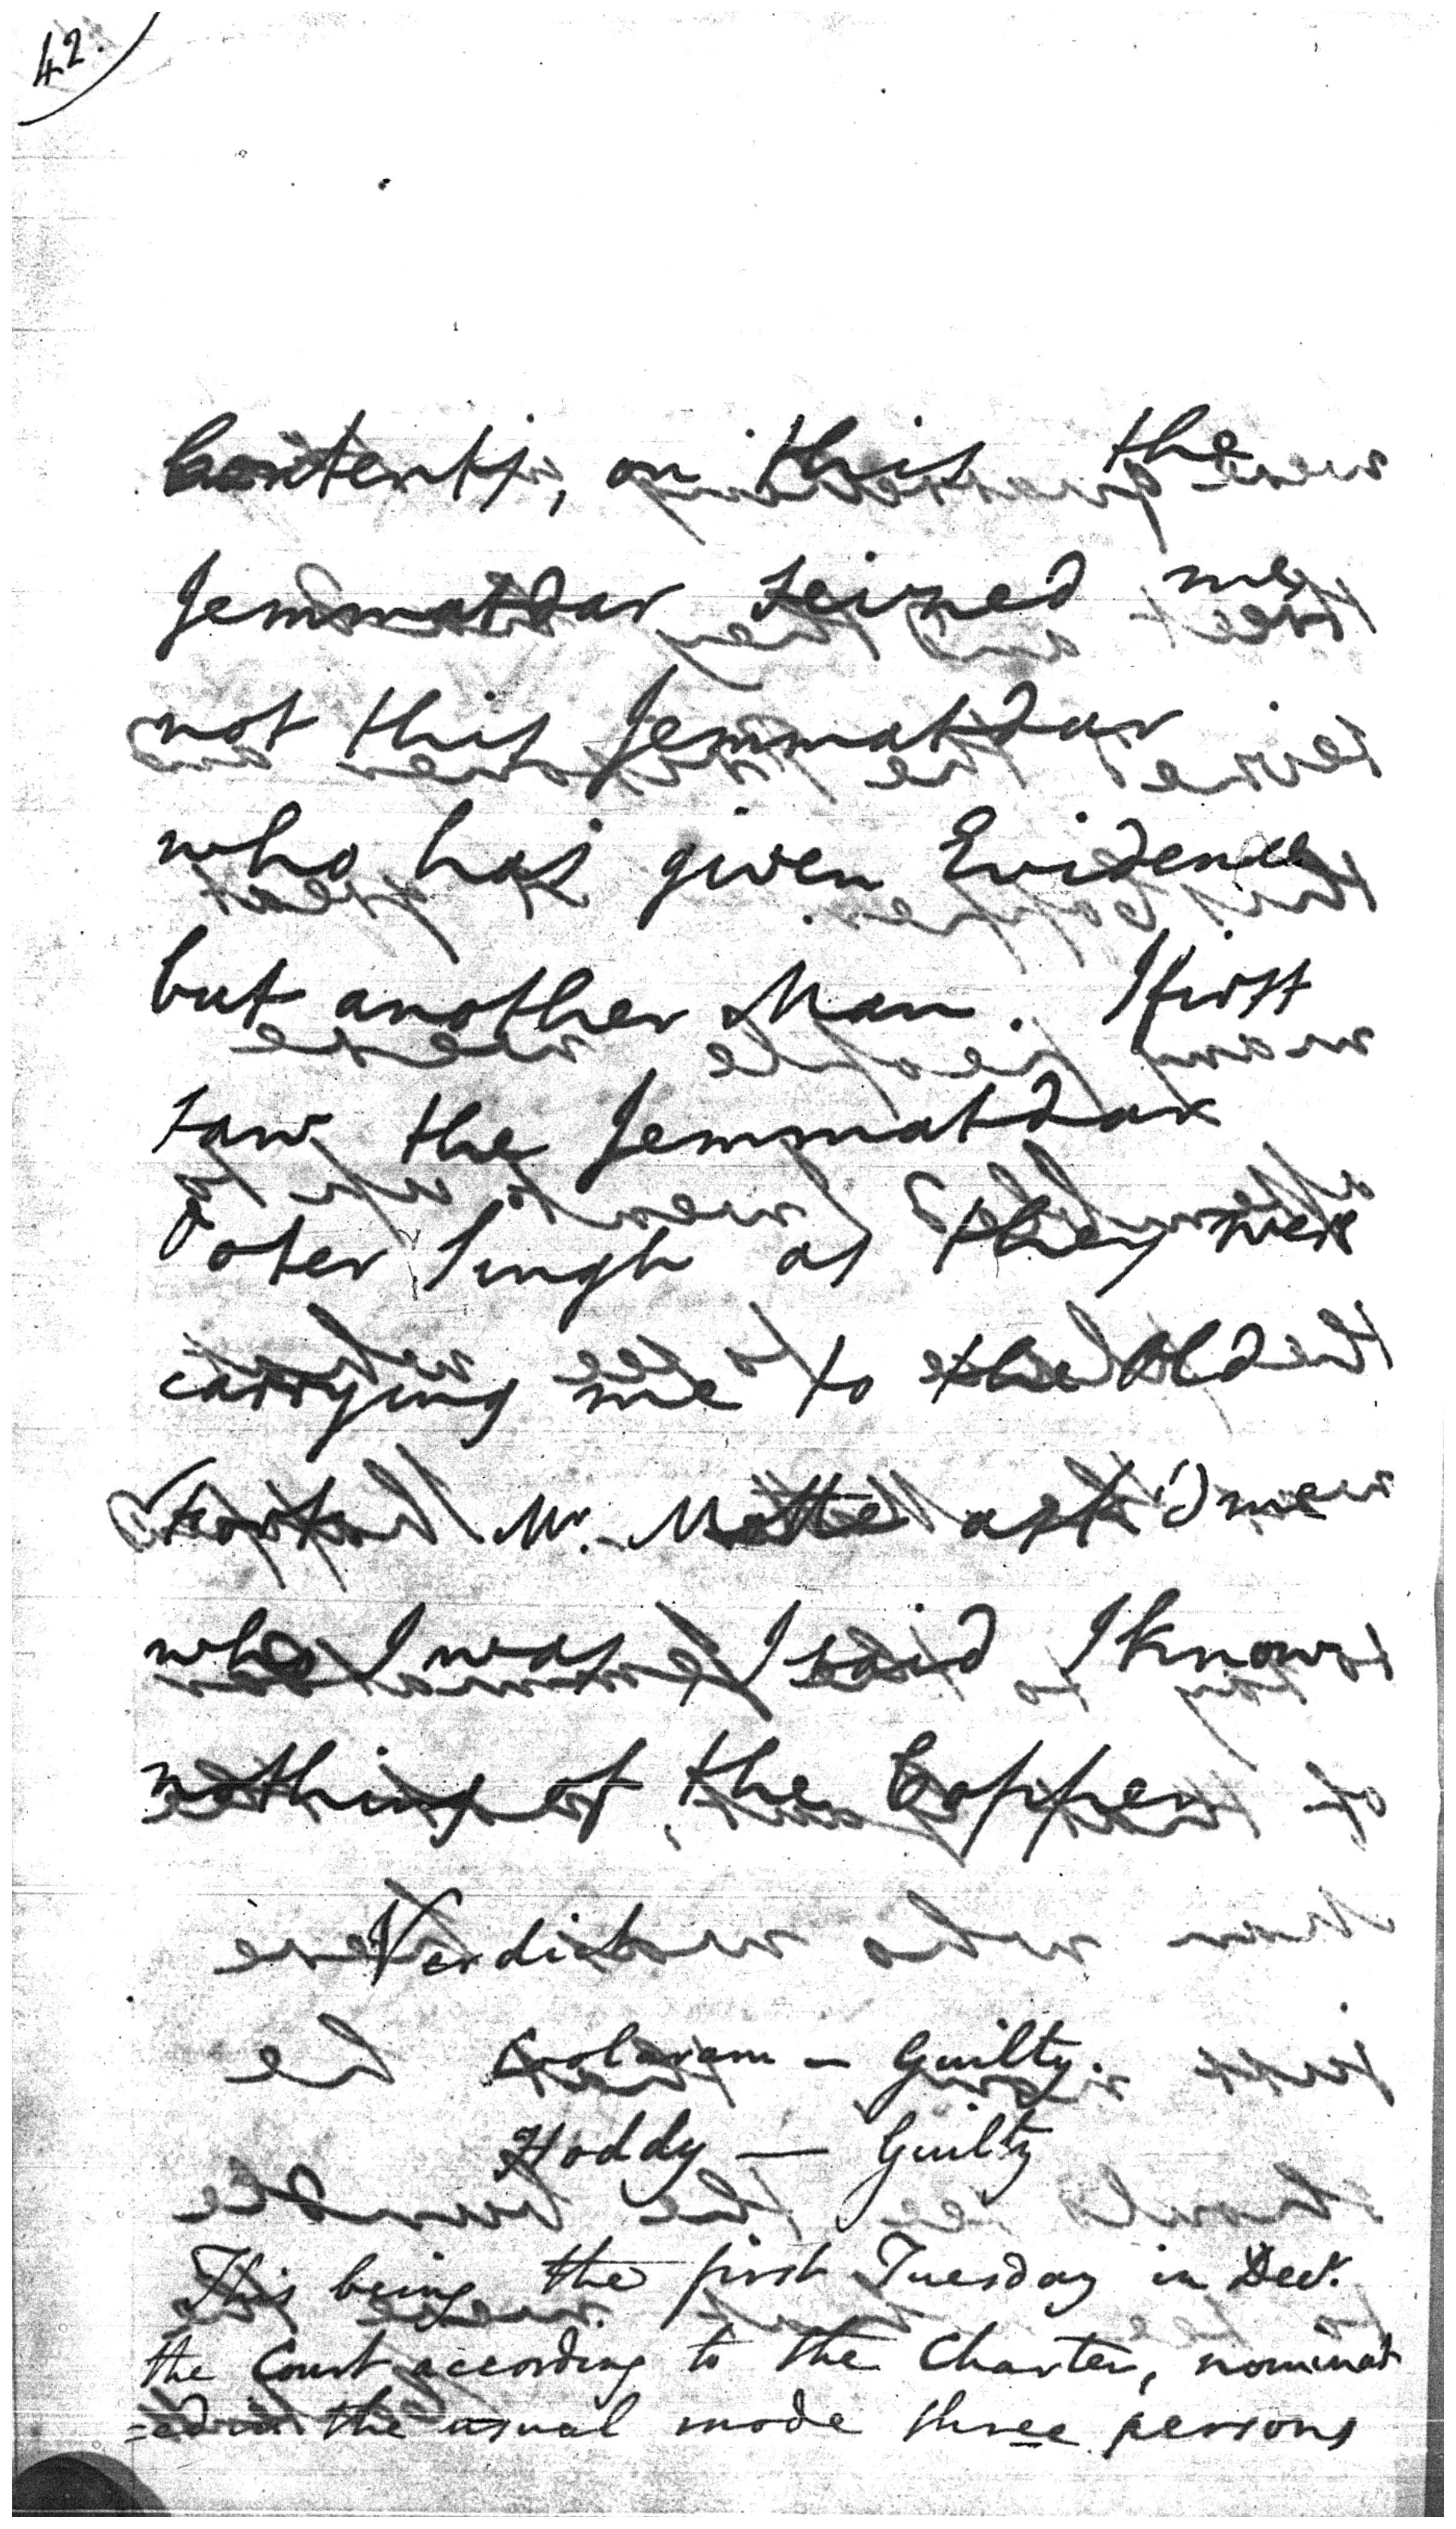 42.
Contents, on this the
Jemmatdar seized me
not this Jemmatdar
who has given Evidence
but another Man. I first
saw the Jemmatdar
Singh as they were
carrying me to the Old
Fort. Mr. Motte ask'd me
who I was, I said I know
nothing of the Copper
Verdict
Coolaram — Guilty.
Hoddy — Guilty
This being the first Tuesday in Decr.
the Court according to the Charter, nominat
=ed in the usual mode three persons